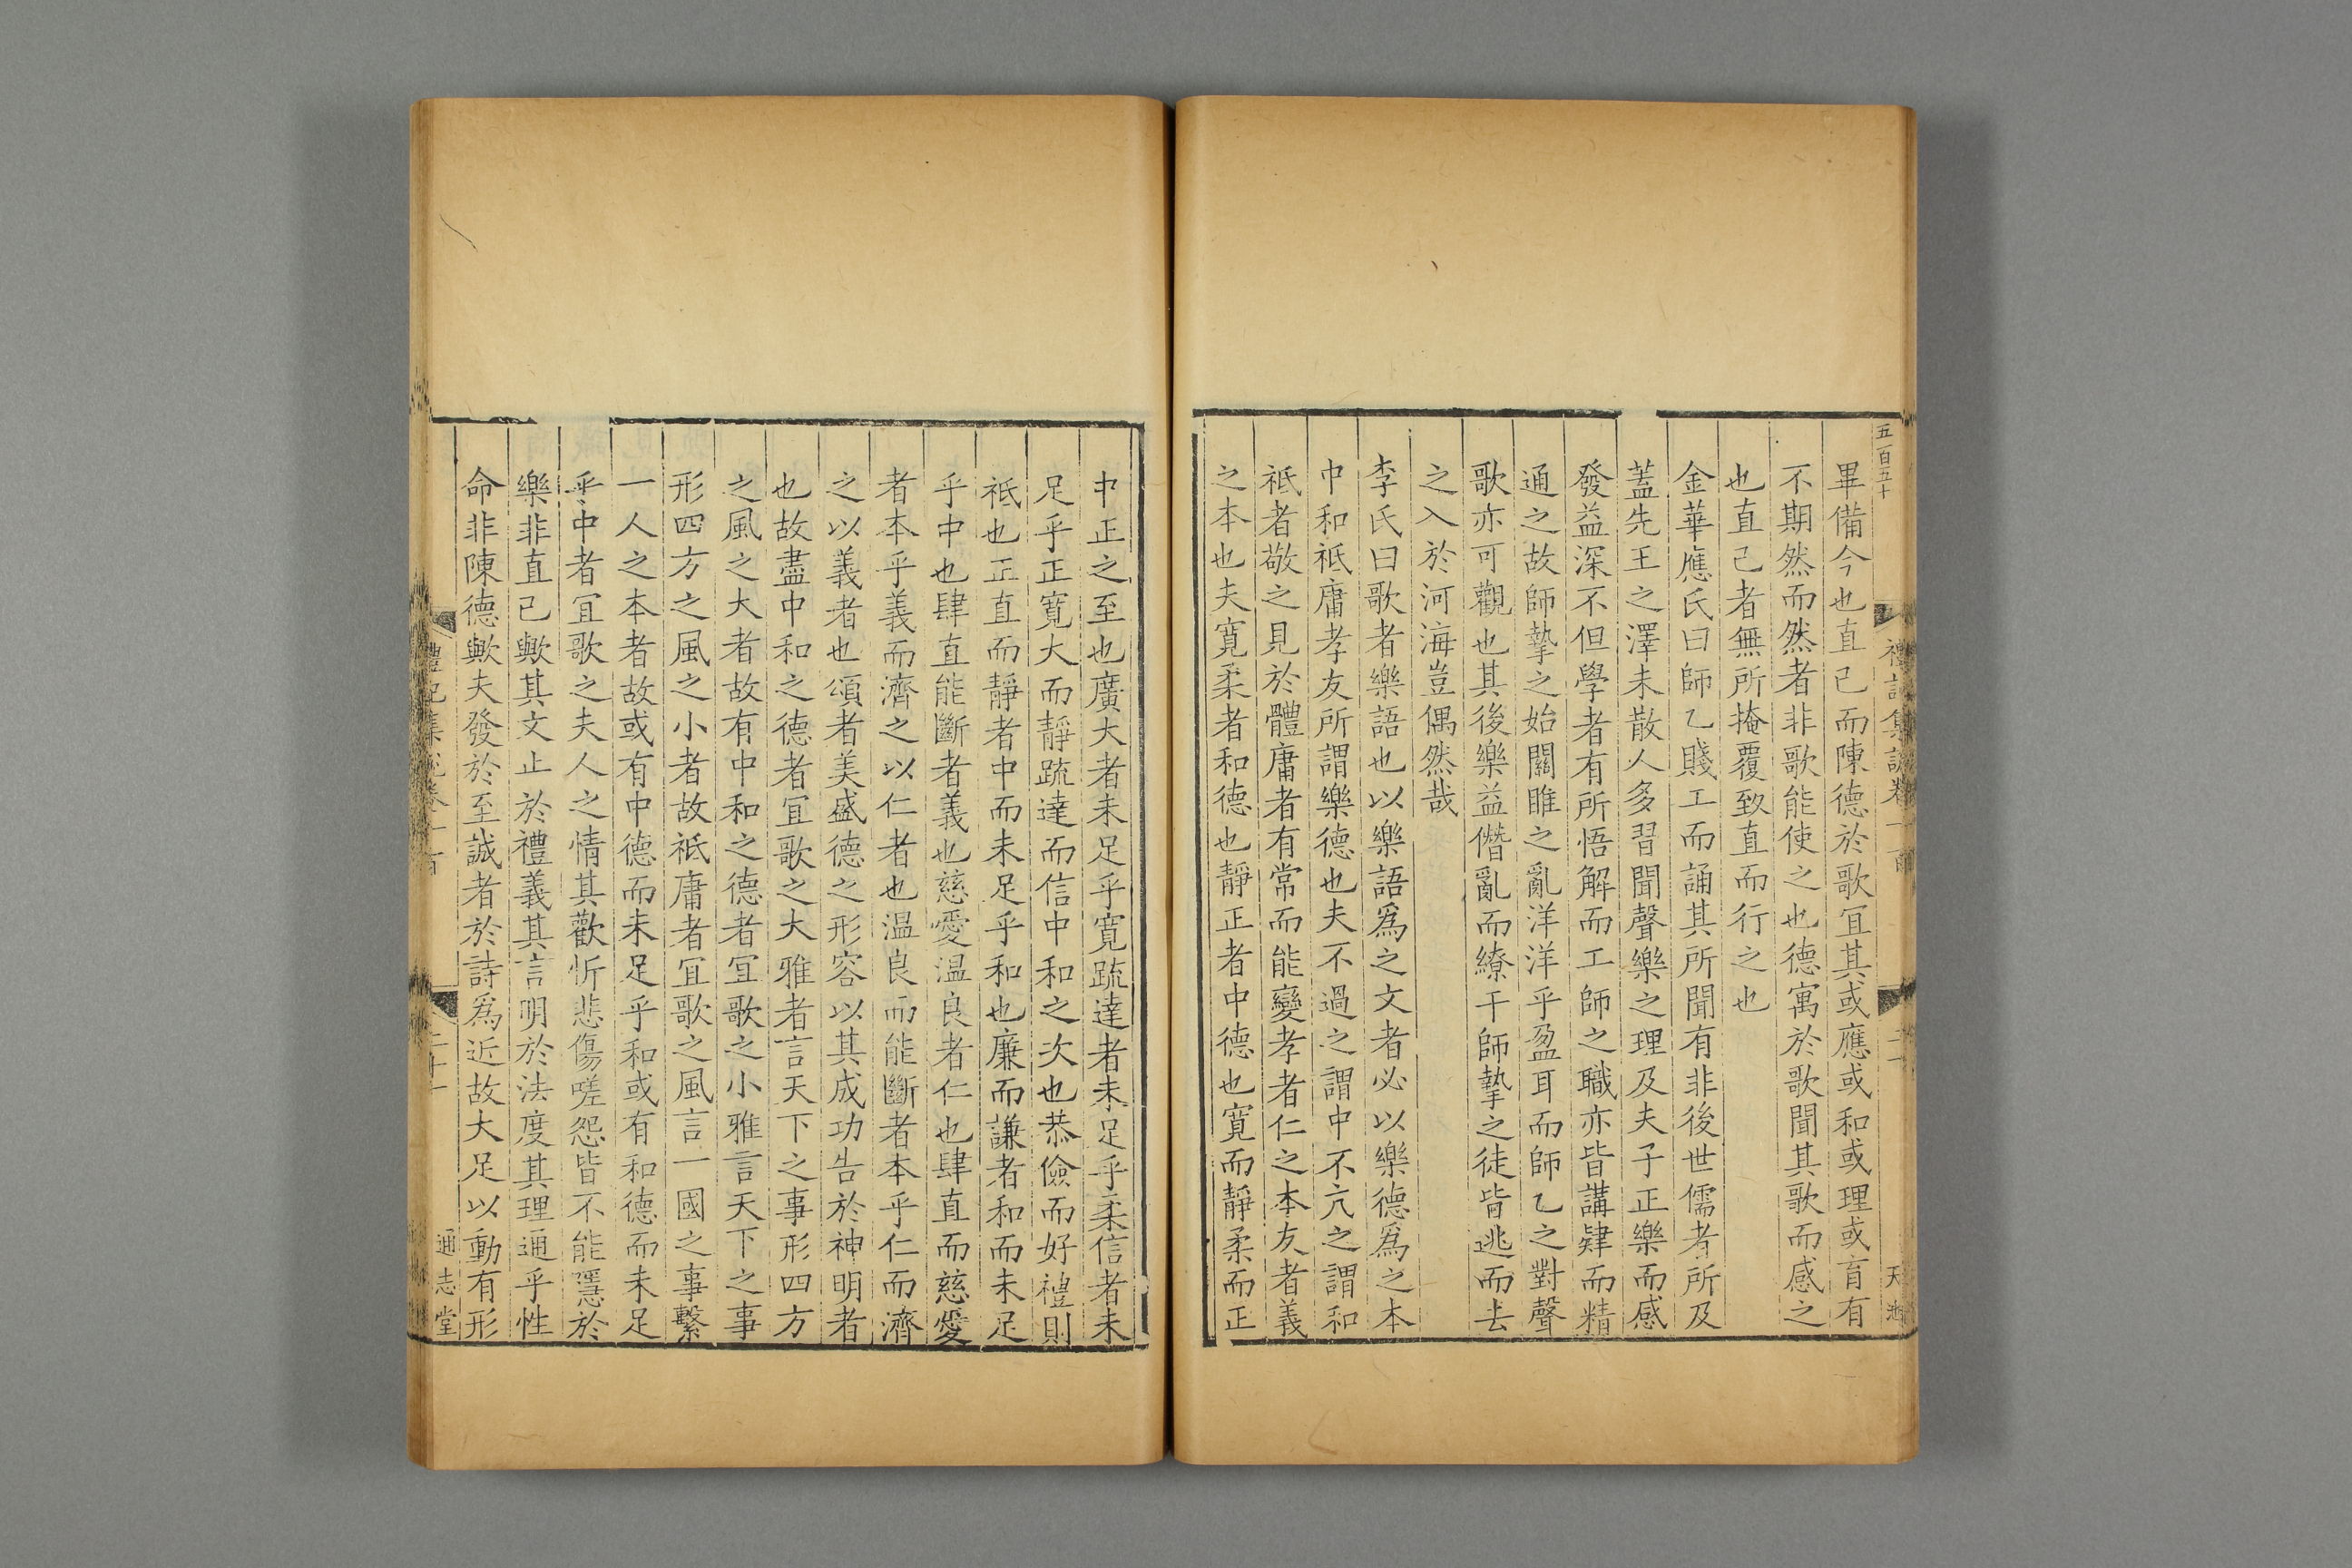 五百五十
禮記集說卷一百
二十
畢備今也直己而陳德於歌宜其或應或和或理或育有
不期然而然者非歌能使之也德寓於歌聞其歌而感之
也直己者無所掩覆致直而行之也
金華應氏曰師乙賤工而誦其所聞有非後世儒者所及
蓋先王之澤未散人多習聞聲樂之理及夫子正樂而感
發益深不但學者有所悟解而工師之職亦皆講肄而精
通之故師摯之始關雎之亂洋洋乎盈耳而師乙之對聲
歌亦可觀也其後樂益僭亂而繚干師摯之徒皆逃而去
之入於河海豈偶然哉
李氏曰歌者樂語也以樂語爲之文者必以樂德爲之本
中和祗庸孝友所謂樂德也夫不過之謂中不亢之謂和
祗者敬之見於體庸者有常而能變孝者仁之本友者義
之本也夫寬柔者和德也靜正者中德也寬而靜柔而正
中正之至也廣大者未足乎寬疏達者未足乎柔信者未
足乎正寬大而靜疏達而信中和之次也恭儉而好禮則
祗也正直而靜者中而未足乎和也廉而謙者和而未足
乎中也肆直能斷者義也慈愛溫良者仁也肆直而慈愛
者本乎義而濟之以仁者也溫良而能斷者本乎仁而濟
之以義者也頌者美盛德之形容以其成功告於神明者
也故盡中和之德者宜歌之大雅者言天下之事形四方
之風之大者故有中和之德者宜歌之小雅言天下之事
形四方之風之小者故祗庸者宜歌之風言一國之事繫
一人之本者故或有中德而未足乎和或有和德而未足
乎中者宜歌之夫人之情其歡忻悲傷嗟怨皆不能隱於
樂非直己歟其文止於禮義其言明於法度其理通乎性
命非陳德歟夫發於至誠者於詩爲近故大足以動有形
禮記集說卷一百
通志堂